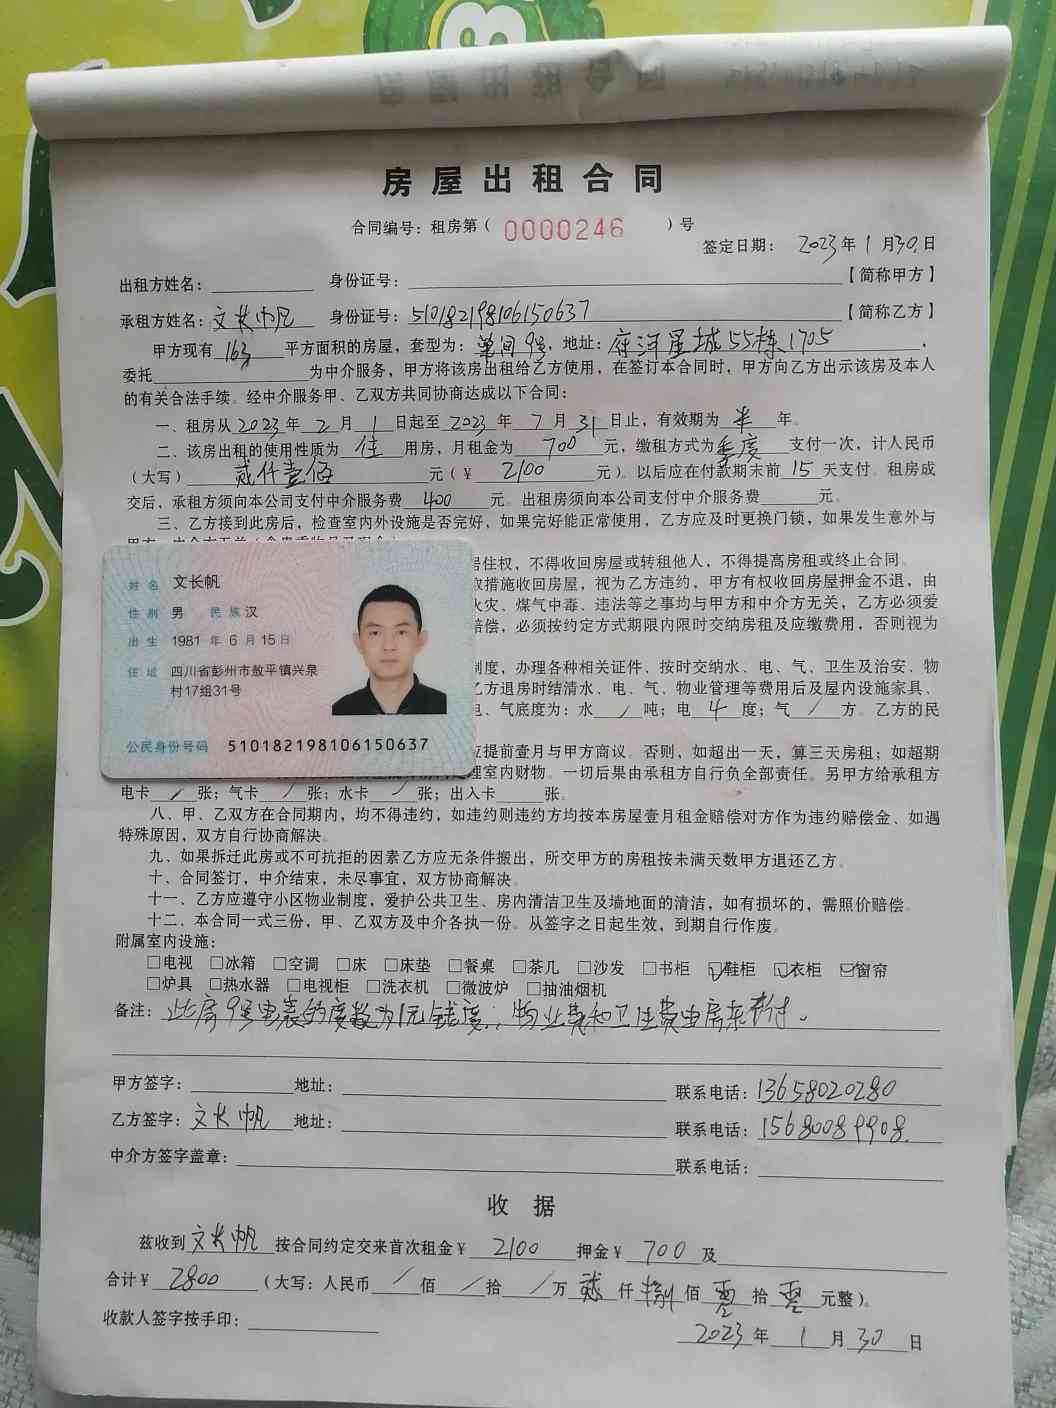 房屋出租合同
合同编号：租房第（ 0000246 ）号
签定日期： 2023年1月30日
出租方姓名： 身份证号： 【简称甲方】
承租方姓名：文长帆 身份证号：510182198106150637 【简称乙方】
甲方现有 163 平方面积的房屋，套型为：单间9号，地址：府河星城55栋1705，
委托 为中介服务，甲方将该房出租给乙方使用，在签订本合同时，甲方向乙方出示该房及本人
的有关合法手续。经中介服务甲、乙双方共同协商达成以下合同：
一、租房从2023年2月1日起至2023年7月31日止，有效期为半年。
二、该房出租的使用性质为 住 用房，月租金为 700 元，缴租方式为季度支付一次，计人民币
（大写） 贰仟壹佰 元（￥ 2100 元）。以后应在付款期末前15天支付。租房成
交后，承租方须向本公司支付中介服务费 400 元。出租房须向本公司支付中介服务费 元。
三、乙方接到此房后，检查室内外设施是否完好，如果完好能正常使用，乙方应及时更换门锁，如果发生意外与
居住权，不得收回房屋或转租他人，不得提高房租或终止合同。
取措施收回房屋，视为乙方违约，甲方有权收回房屋押金不退，由
火灾、煤气中毒、违法等之事均与甲方和中介方无关，乙方必须爱
赔偿，必须按约定方式期限内限时交纳房租及应缴费用，否则视为
制度，办理各种相关证件、按时交纳水、电、气、卫生及治安、物
乙方退房时结清水、电、气、物业管理等费用后及屋内设施家具、
电、气底度为：水 / 吨；电 4 度；气 / 方。乙方的民
应提前壹月与甲方商议。否则，如超出一天，算三天房租；如超期
理室内财物。一切后果由承租方自行负全部责任。另甲方给承租方
姓名 文长帆
性别 男 民族 汉
出生 1981 年 6 月 15 日
住址 四川省彭州市敖平镇兴泉
村17组31号
公民身份号码 510182198106150637
电卡 / 张；气卡 / 张；水卡 / 张；出入卡 张。
八、甲、乙双方在合同期内，均不得违约，如违约则违约方均按本房屋壹月租金赔偿对方作为违约赔偿金、如遇
特殊原因，双方自行协商解决。
九、如果拆迁此房或不可抗拒的因素乙方应无条件搬出，所交甲方的房租按未满天数甲方退还乙方。
十、合同签订，中介结束，未尽事宜，双方协商解决。
十一、乙方应遵守小区物业制度，爱护公共卫生、房内清洁卫生及墙地面的清洁，如有损坏的，需照价赔偿。
十二、本合同一式三份，甲、乙双方及中介各执一份。从签字之日起生效，到期自行作废。
附属室内设施：
□电视 □冰箱 □空调 □床 □床垫 □餐桌 □茶几 □沙发 □书柜 ☑鞋柜 ☑衣柜 ☑窗帘
□炉具 □热水器 □电视柜 □洗衣机 □微波炉 □抽油烟机
备注：此房9号电表的度数为1元钱度，物业费和卫生费由房东支付。
甲方签字： 地址： 联系电话：13658020280
乙方签字：文长帆 地址： 联系电话：15680089908
中介方签字盖章： 联系电话：
收 据
兹收到文长帆 按合同约定交来首次租金￥ 2100 押金￥ 700 及
合计￥ 2800 （大写：人民币 / 佰 / 拾 / 万 贰 仟 捌 佰 零 拾 零 元整）。
收款人签字按手印：
2023年1月30日